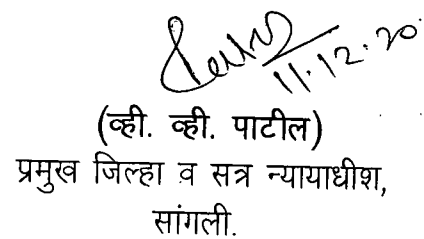 11.12.20
(व्ही. व्ही. पाटील)
प्रमुख जिल्हा व सत्र न्यायाधीश,
सांगली.